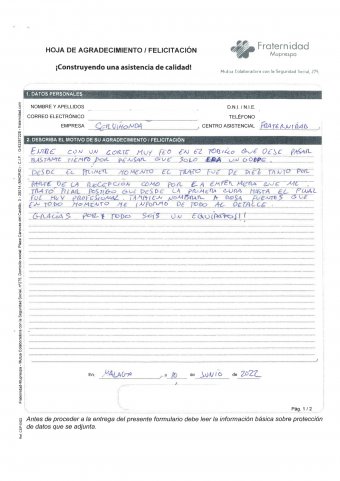 HOJA DE AGRADECIMIENTO / FELICITACIÓN
¡Construyendo una asistencia de calidad!
Fraternidad
Muprespa
Mutua Colaboradora con la Seguridad Social, 275
1. DATOS PERSONALES
NOMBRE Y APELLIDOS
D.N.I. / N.I.E.
CORREO ELECTRÓNICO
TELÉFONO
EMPRESA
CENTRO ASISTENCIAL FRATERNIDAD
2. DESCRIBA EL MOTIVO DE SU AGRADECIMIENTO / FELICITACIÓN
ENTRE CON UN CORTE MUY FEO EN EL TOBILLO QUE DEJE PASAR
BASTANTE TIEMPO POR PENSAR QUE SOLO ERA UN GOLPE.
DESDE EL PRIMER MOMENTO EL TRATO FUE DE DIEZ TANTO POR
PARTE DE LA RECEPCION COMO POR LA ENFERMERA QUE ME
TRATO PILAR POSTIGO QUE DESDE LA PRIMERA CURA HASTA EL FINAL
FUE MUY PROFESIONAL TAMBIEN NOMBRAR A ROSA FUENTES QUE
EN TODO MOMENTO ME INFORMO DE TODO AL DETALLE.
GRACIAS POR TODO SOIS UN EQUIPAZO!!
En MALAGA a 10 de JUNIO de 2022
Pág. 1 / 2
Antes de proceder a la entrega del presente formulario debe leer la información básica sobre protección
de datos que se adjunta.